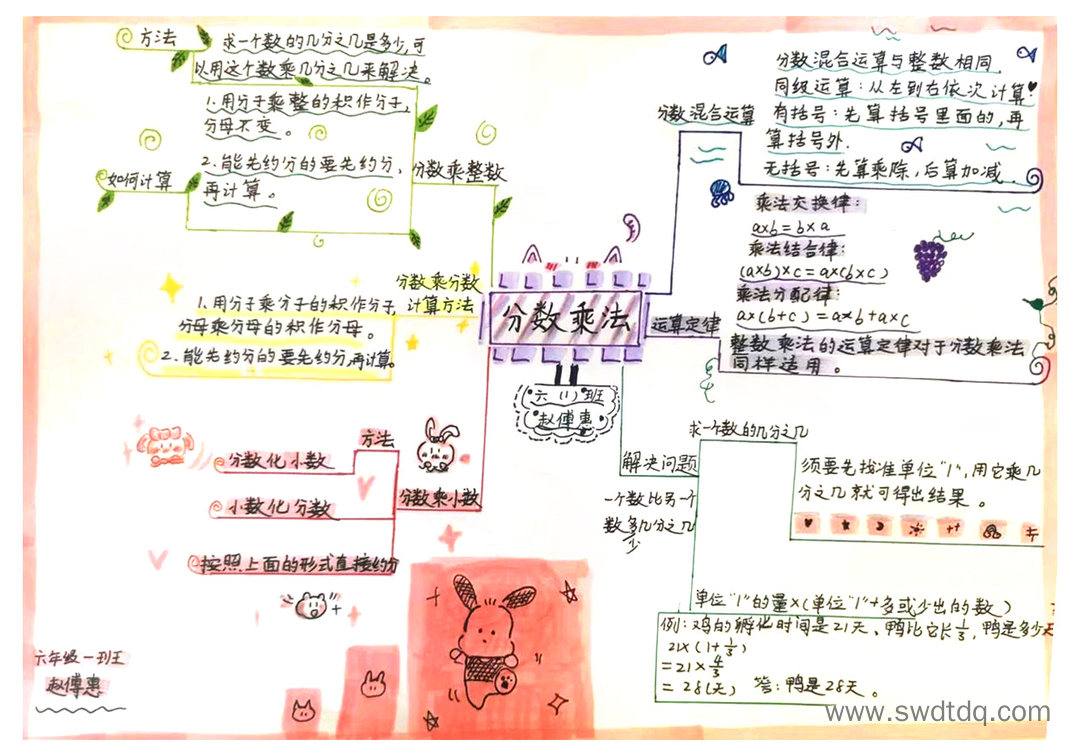 方法
求一个数的几分之几是多少,可
以用这个数乘几分之几来解决。
1.用分子乘整的积作分子,
分母不变。
2.能先约分的要先约分,
再计算。
如何计算
分数乘整数
分数乘分数
计算方法
1.用分子乘分子的积作分子,
分母乘分母的积作分母。
2.能先约分的要先约分,再计算。
方法
分数化小数
小数化分数
分数乘小数
按照上面的形式直接约分
六年级一班王
赵傅惠
分数乘法
六(1)班
赵傅惠
分数混合运算
分数混合运算与整数相同.
同级运算:从左到右依次计算
有括号:先算括号里面的,再
算括号外.
无括号:先算乘除,后算加减.
运算定律
乘法交换律:
a×b=b×a
乘法结合律:
(a×b)×c=a×(b×c)
乘法分配律:
a×(b+c)=a×b+a×c
整数乘法的运算定律对于分数乘法
同样适用。
解决问题
求一个数的几分之几
须要先找准单位"1",用它乘几
分之几就可得出结果。
一个数比另一个
数多几分之几
少
单位"1"的量×(单位"1"+多或少出的数)
例:鸡的孵化时间是21天、鸭比它长1/3,鸭是多少天
21×(1+1/3)
=21×4/3
=28(天) 答:鸭是28天。
www.swdtdq.com